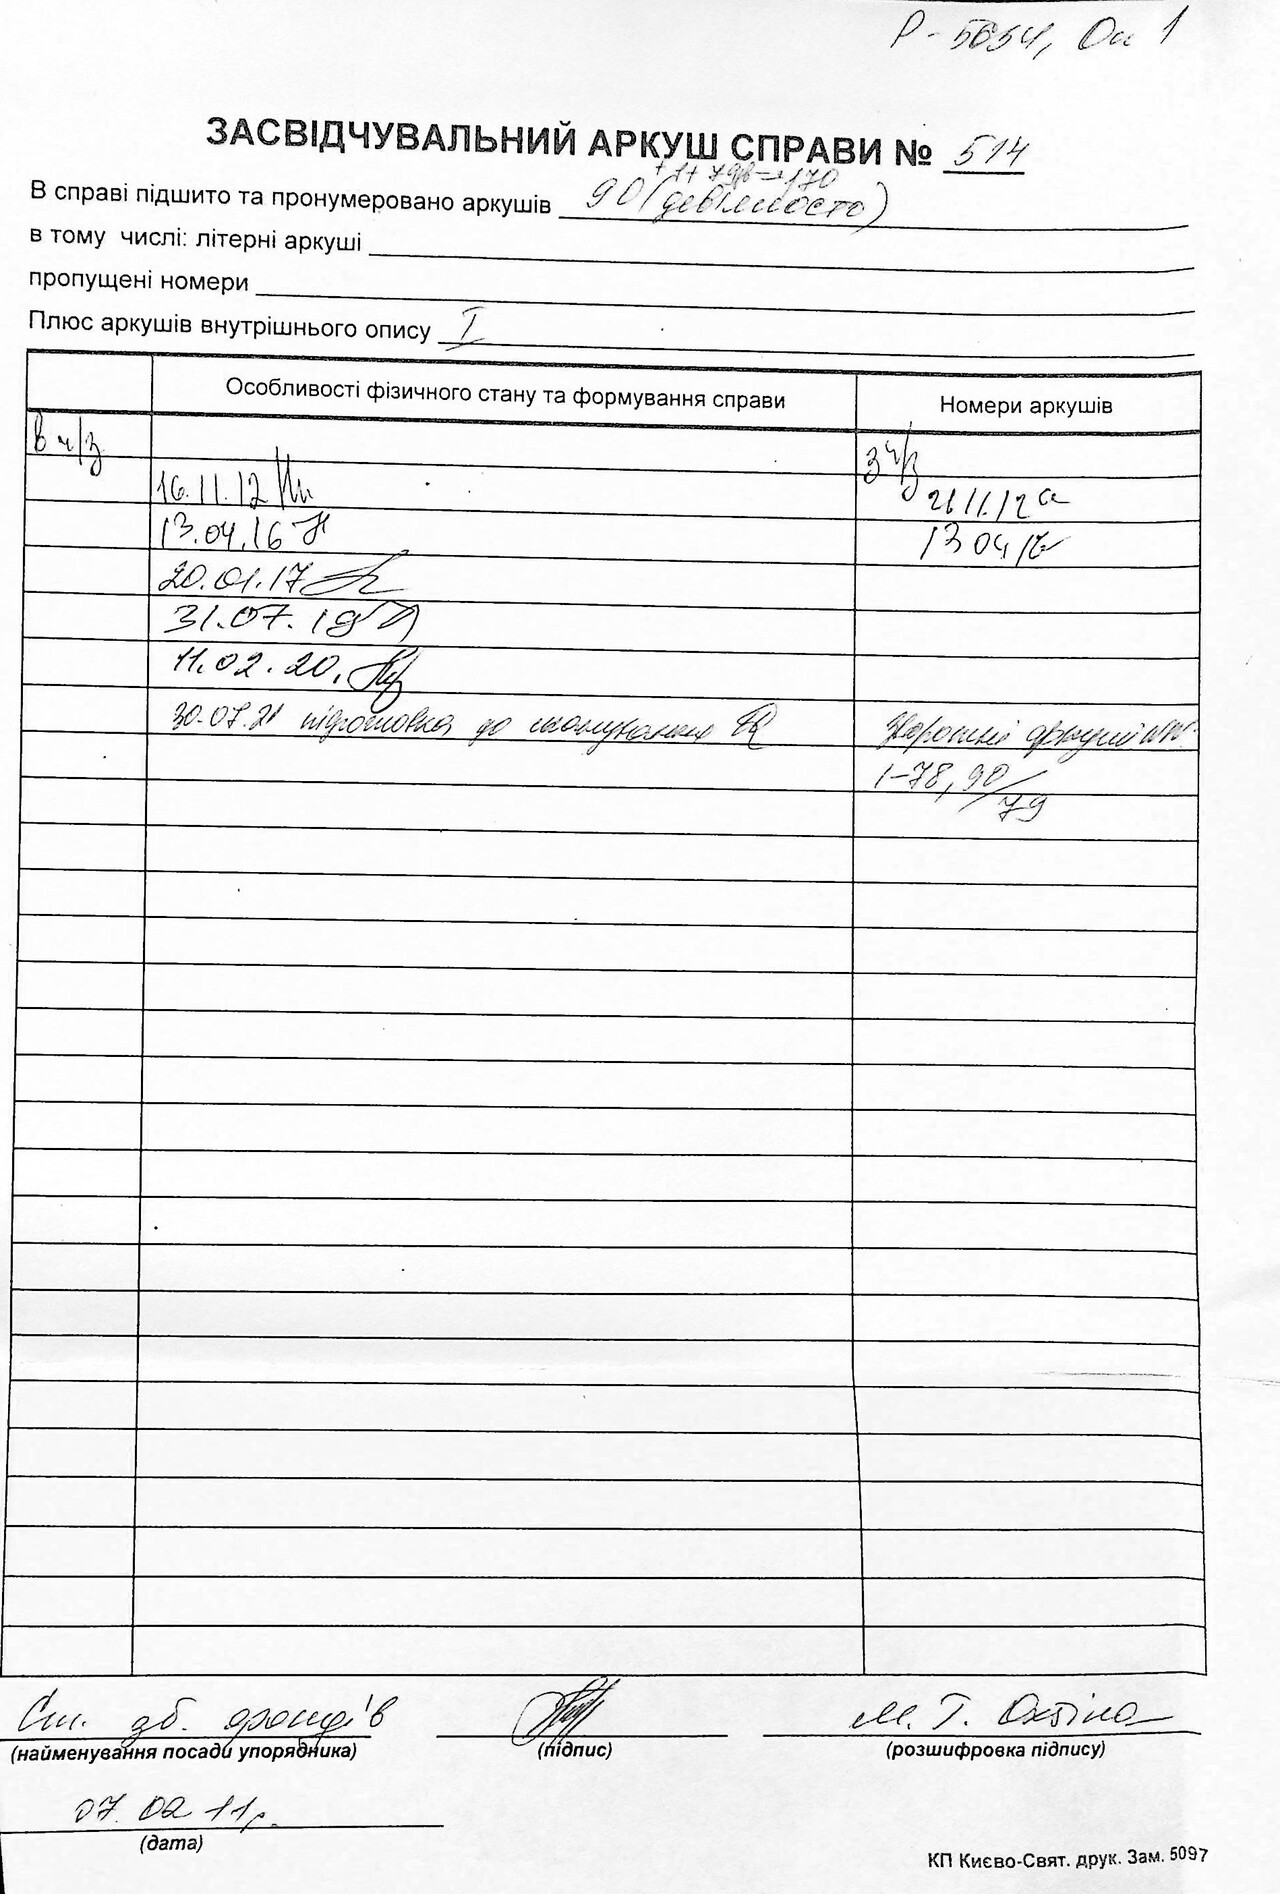 Р-5654, Оп 1
ЗАСВІДЧУВАЛЬНИЙ АРКУШ СПРАВИ № 514
+1+79зв=170
В справі підшито та пронумеровано аркушів 90 (дев'яносто)
в тому числі: літерні аркуші
пропущені номери
Плюс аркушів внутрішнього опису I
Особливості фізичного стану та формування справи Номери аркушів
в ч/з З ч/з
16.11.12 21.11.12
13.04.16 13 04 16
20.01.17
31.07.19
11.02.20.
30.07.21 підготовка до сканування Зворотні аркуші №№:
1-78, 90/79
Ст. зб. фондів М. Т.
(найменування посади упорядника) (підпис) (розшифровка підпису)
07.02 11р.
(дата)
КП Києво-Свят. друк. Зам. 5097